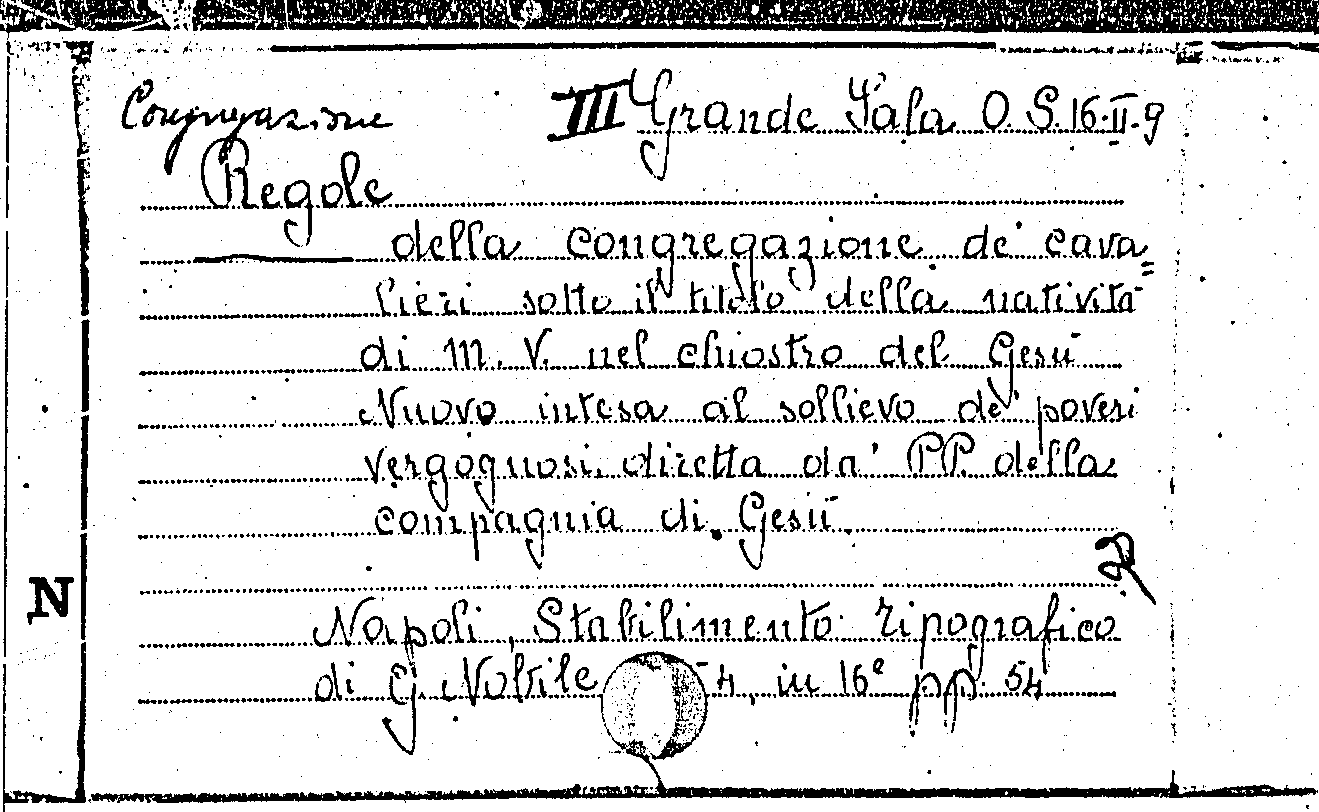 Congregazione III Grande Sala O. S. 16.II.9
Regole
della congregazione de' cava=
lieri sotto il titolo della natività
di M. V. nel chiostro del Gesù
Nuovo intesa al sollievo de' poveri
vergognosi, diretta da' PP. della
compagnia di Gesù.
N
Napoli, Stabilimento tipografico
di G. Nobile 4, in 16° pp. 54